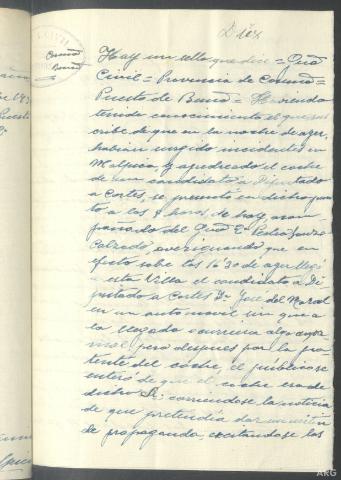 Hay un sello que dice = Gua
Civil = Provincia de Coruña =
Puesto de Buño = Habiendo
tenido conocimiento el que sus
cribe de que en la noche de ayer,
habian surgido incidentes en
Malpica y apedreado el coche
de un candidato a Diputado
a Cortes, se presentó en dicho pun
to a las 9 horas de hoy, acom
pañado del Gua 2º Pedro
Calzado, averiguando que en
efecto sobre las 16'30 de ayer llegó
a esta Villa el candidato a Di
putado a Cortes Dn José del Moral
en un automovil sin que a
la llegada ocurriera algo anor
mal, pero despues por la pa
tente del coche, el público se
enteró de que el coche era de
dicho Sr. corriendose la noticia
de que pretendia dar un mitin
de propaganda, exaltandose los
Coruña
Buño
ARG